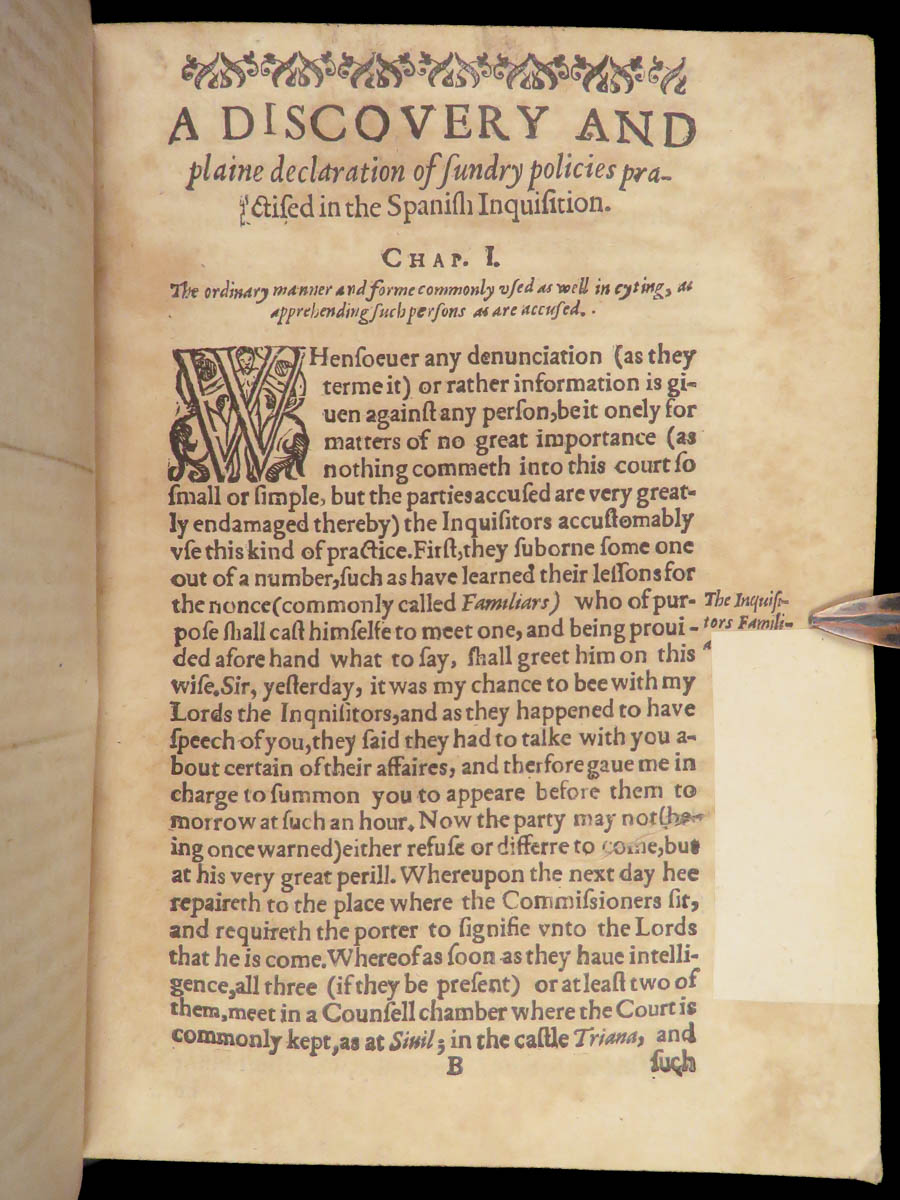 A DISCOVERY AND
plaine declaration of ſundry policies pra-
ctiſed in the Spaniſh Inquiſition.
CHAP. I.
The ordinary manner and forme commonly vſed as well in cyting, as
apprehending ſuch perſons as are accuſed.
WHenſoeuer any denunciation (as they
terme it) or rather information is gi-
uen againſt any perſon,be it onely for
matters of no great importance (as
nothing commeth into this court ſo
ſmall or ſimple, but the parties accuſed are very great-
ly endamaged thereby) the Inquiſitors accuſtomably
vſe this kind of practice. Firſt,they ſuborne ſome one
out of a number,ſuch as have learned their leſſons for
the nonce(commonly called Familiars) who of pur-
The Inquiſi-
poſe ſhall caſt himſelfe to meet one, and being proui-
tors Famili-
ded afore hand what to ſay, ſhall greet him on this
wiſe.Sir, yeſterday, it was my chance to bee with my
Lords the Inqniſitors,and as they happened to have
ſpeech of you,they ſaid they had to talke with you a-
bout certain of their affaires, and therfore gaue me in
charge to ſummon you to appeare before them to
morrow at ſuch an hour. Now the party may not(be-
ing once warned)either refuſe or differre to come,but
at his very great perill. Whereupon the next day hee
repaireth to the place where the Commiſsioners ſit,
and requireth the porter to ſignifie vnto the Lords
that he is come.Whereof as ſoon as they haue intelli-
gence,all three (if they be preſent) or at leaſt two of
them,meet in a Counſell chamber where the Court is
commonly kept,as at Siuil; in the caſtle Triana, and
B
ſuch